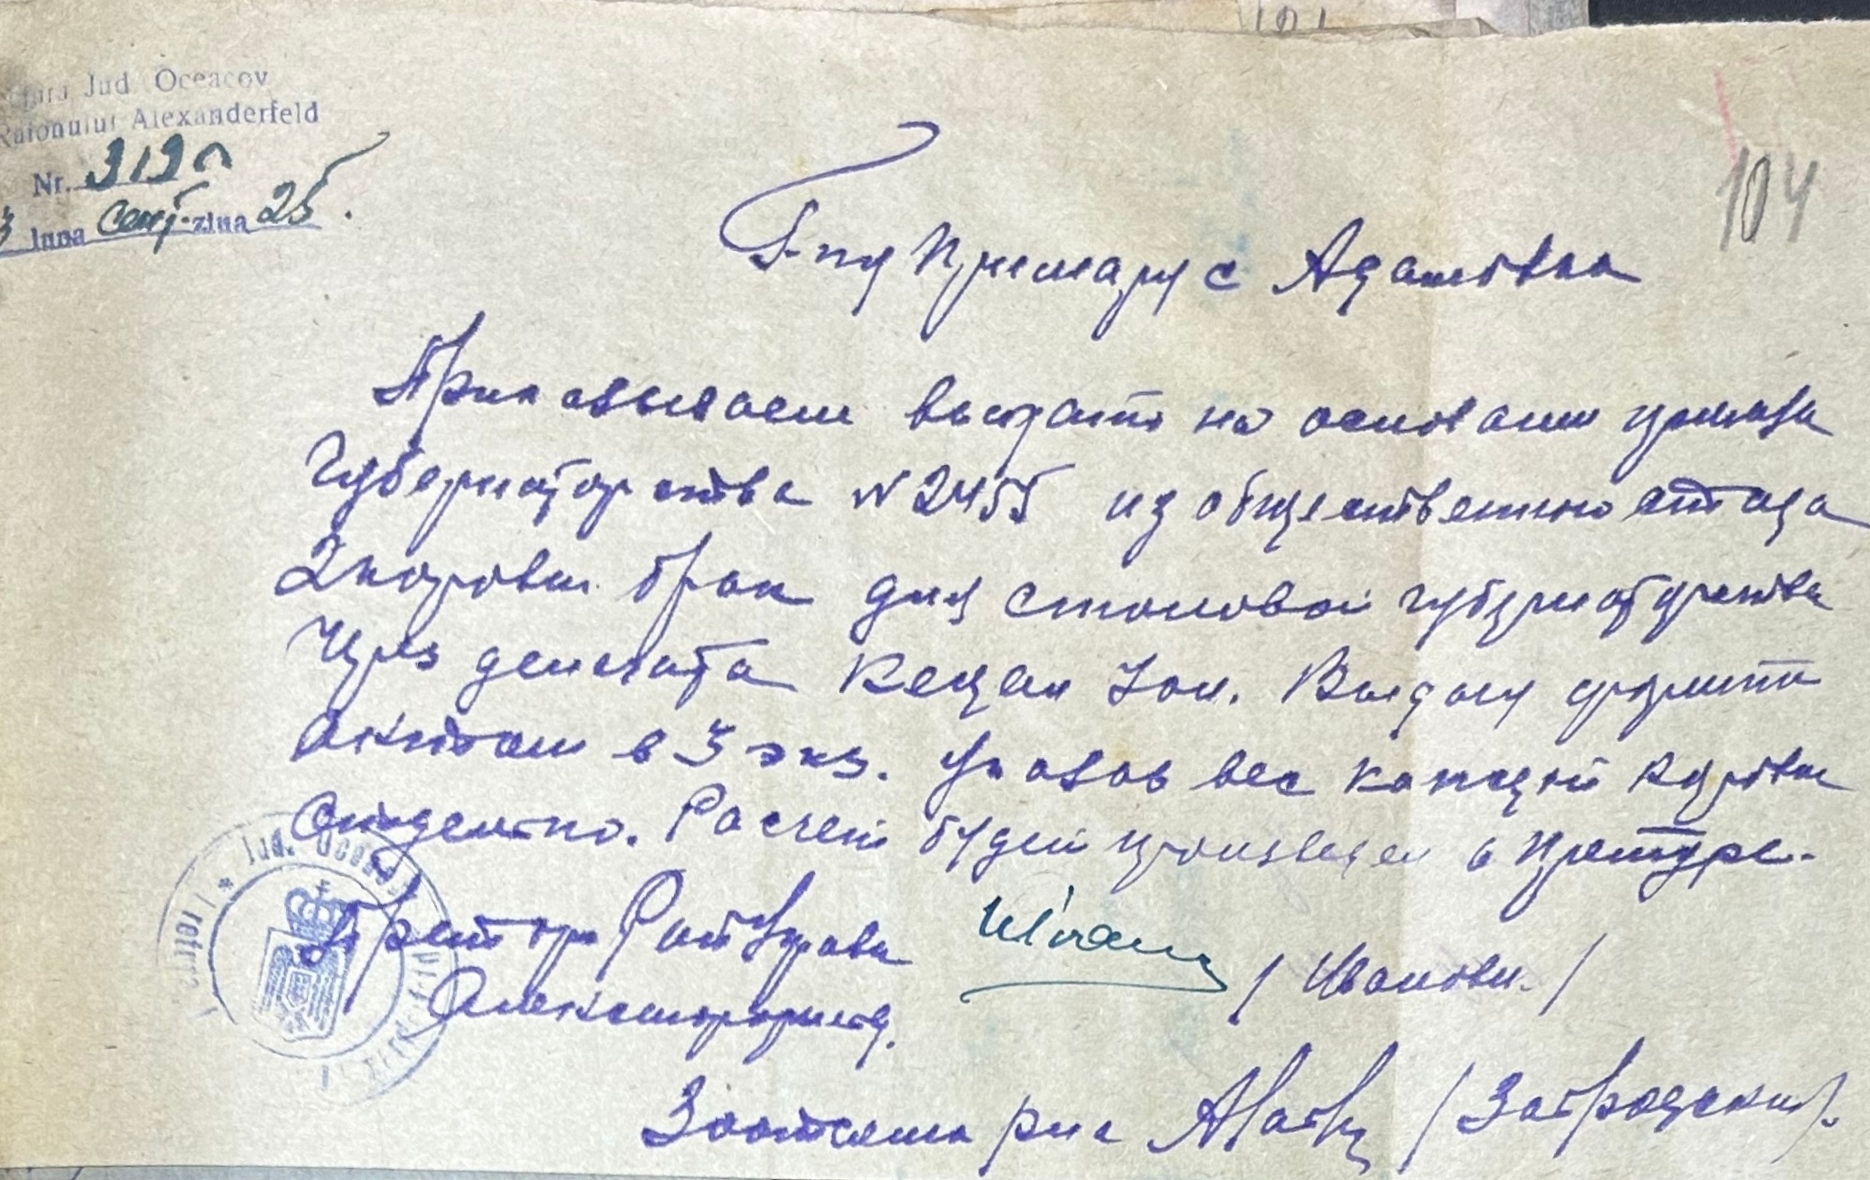 Jud Oceacov
Raionului Alexanderfeld
Nr. 3130
3 luna сент. ziua 25.
104
Г-ну Примару с Адамовка
Приказываем выдать на основании приказа
Губернаторства № 2455 из общественного стада
2 коровы брак для столовой губернаторства
через делегата Кецан Ион. Выдачу оформить
актом в 3 экз. указав вес каждой коровы
отдельно. Расчет будет произведен в претуре.
Претор Рай
Александрфельд.
/ Иванов. /
Зоотехник р-на / Заградский /.
Jud. Oceacov